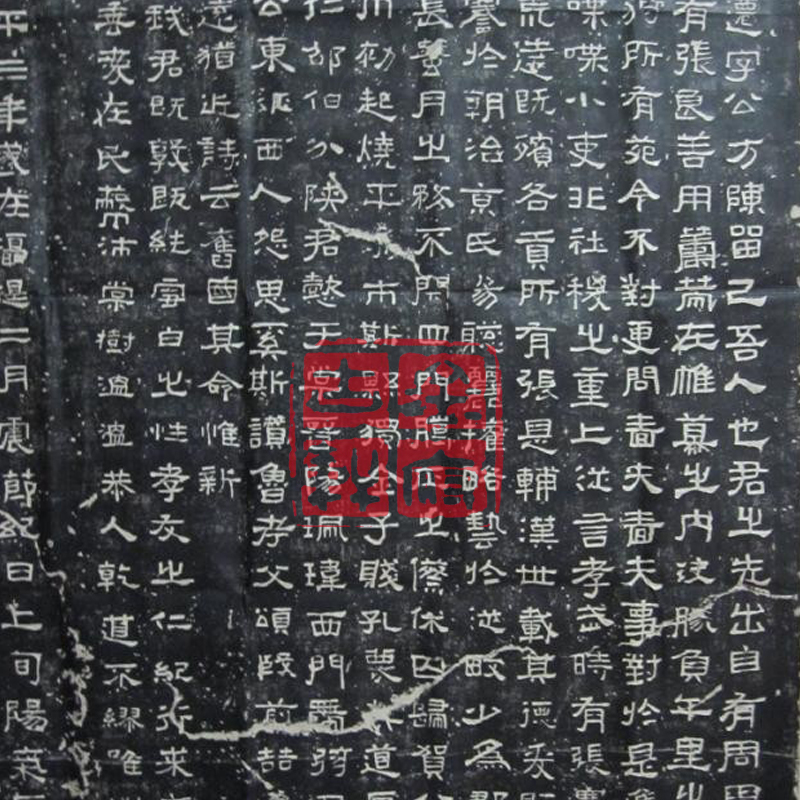 遷字公方陳留己吾人也君之先出自有周周
有張良善用籌策在帷幕之內決勝負千里之
狩所有苑令不對更問嗇夫嗇夫事對於是
喋喋小吏非社稷之重上從言孝武時有張騫
荒遠既殯各貢所有張是輔漢世載其德爰既
謇於朝治京氏易聰麗權略藝於從畋少為郡
長蠶月之務不閉四門臘正之祭休囚歸賀八
初起燒平城市斯縣獨全子賤孔蔑其道區
仁邵伯分陝君懿于棠晉陽珮瑋西門帶弦
公東征西人怨思奚斯讚魯考父頌殷前喆
遠猶近詩云舊國其命惟新
我君既敦既純雪白之性孝友之仁紀行求本
垂愛在民蔽沛棠樹溫溫恭人乾道不繆唯淑
平三年歲在攝提二月震節紀日上旬陽氣